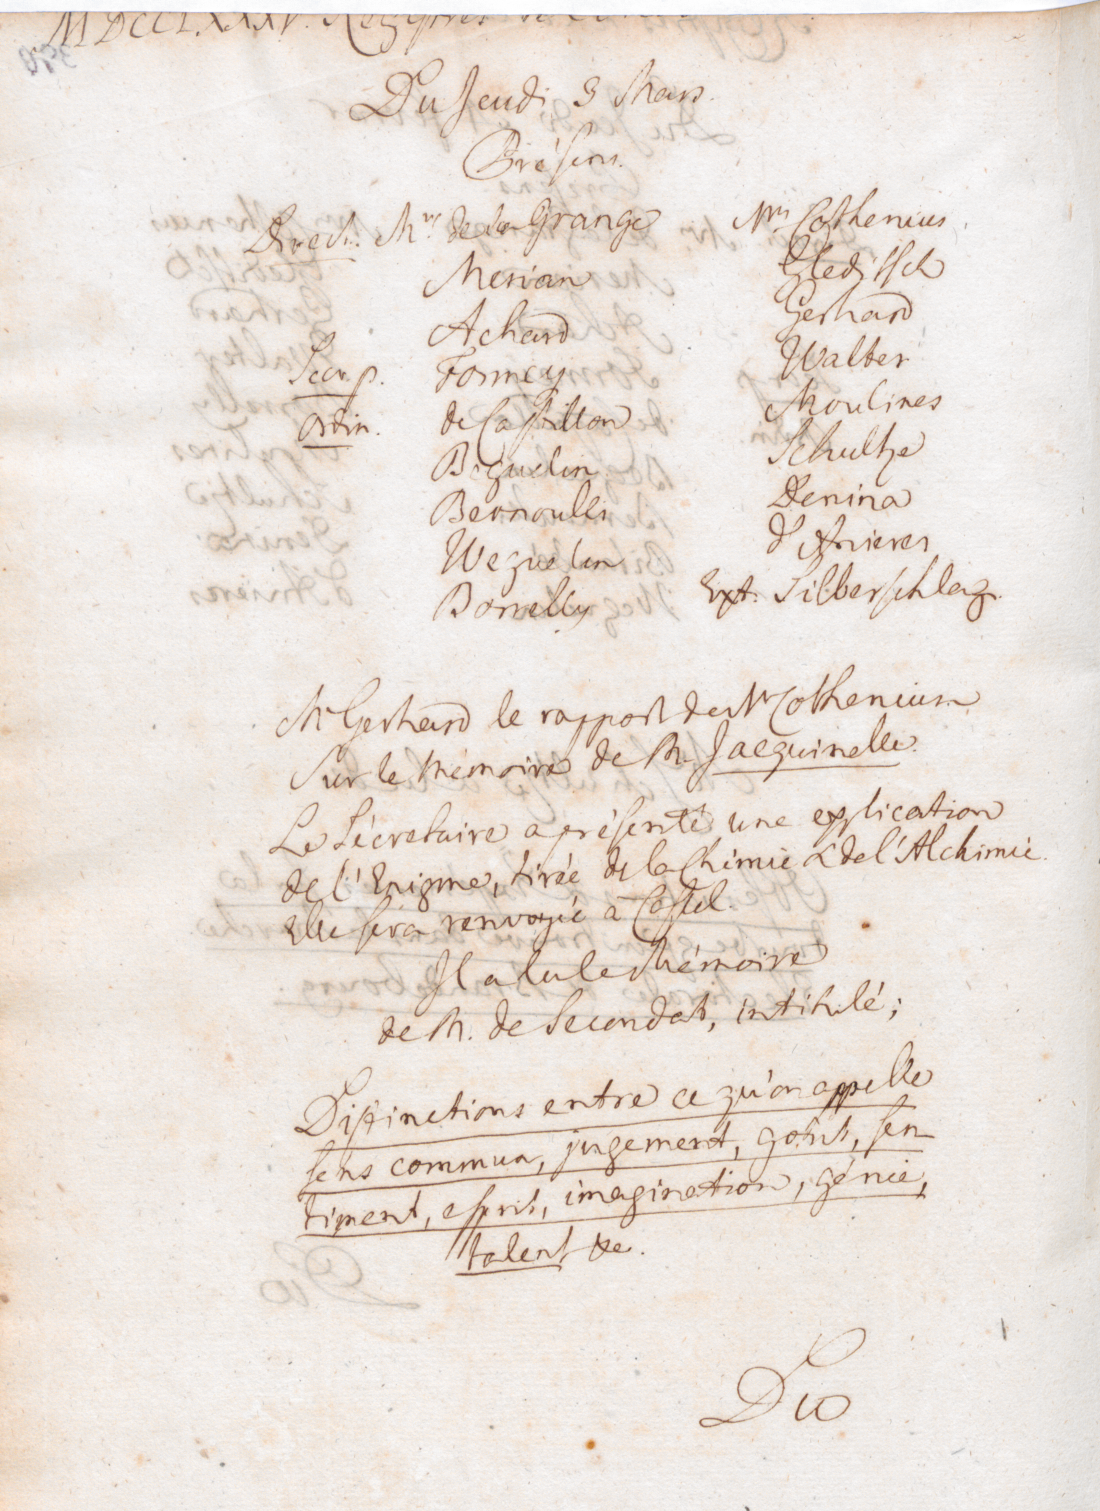 MDCCLXXXV. Registres
Du Jeudi 3 Mars.
Présens.
Direct. Mrs de la Grange
Merian
Achard
Secr. p. Formey
Ordin. de Castillon
Beguelin
Bernoulli
Weguelin
Borrelly
Mrs Cothenius,
Gleditsch
Gerhard
Walter
Moulines
Schultze
Denina
d'Anieres
Ext. Silberschlag.
Mr Gerhard le rapport de Mr Cothenius
sur le Mémoire de M. Jacquinelle.
Le Sécretaire a présenté une explication
de l'Enigme, tirée de la Chimie & de l'Alchimie.
Elle sera renvoyée à Castel.
Il a lu le Mémoire
de M. de Secondat, intitulé;
Distinctions entre ce qu'on appelle
sens commun, jugement, goût, sen
timent, esprit, imagination, génie,
talent &c.
Du